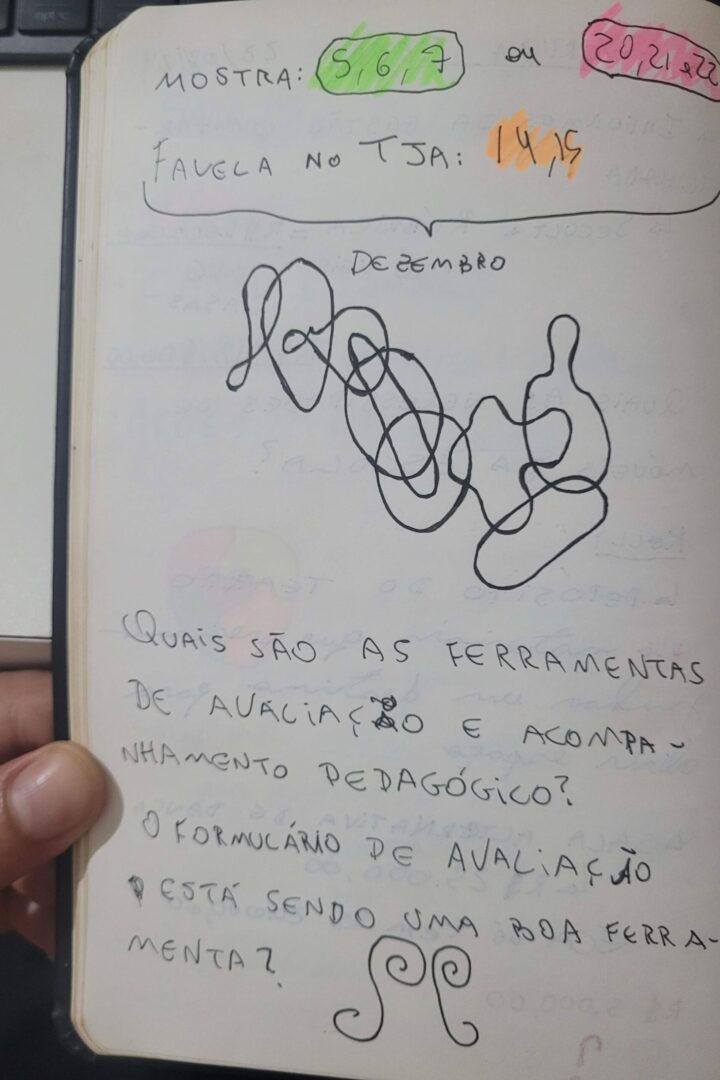 MOSTRA: 5, 6, 7 ou 20, 21 e 22
FAVELA NO TJA: 14, 15
DEZEMBRO
QUAIS SÃO AS FERRAMENTAS
DE AVALIAÇÃO E ACOMPA-
NHAMENTO PEDAGÓGICO?
O FORMULÁRIO DE AVALIAÇÃO
ESTÁ SENDO UMA BOA FERRA-
MENTA?